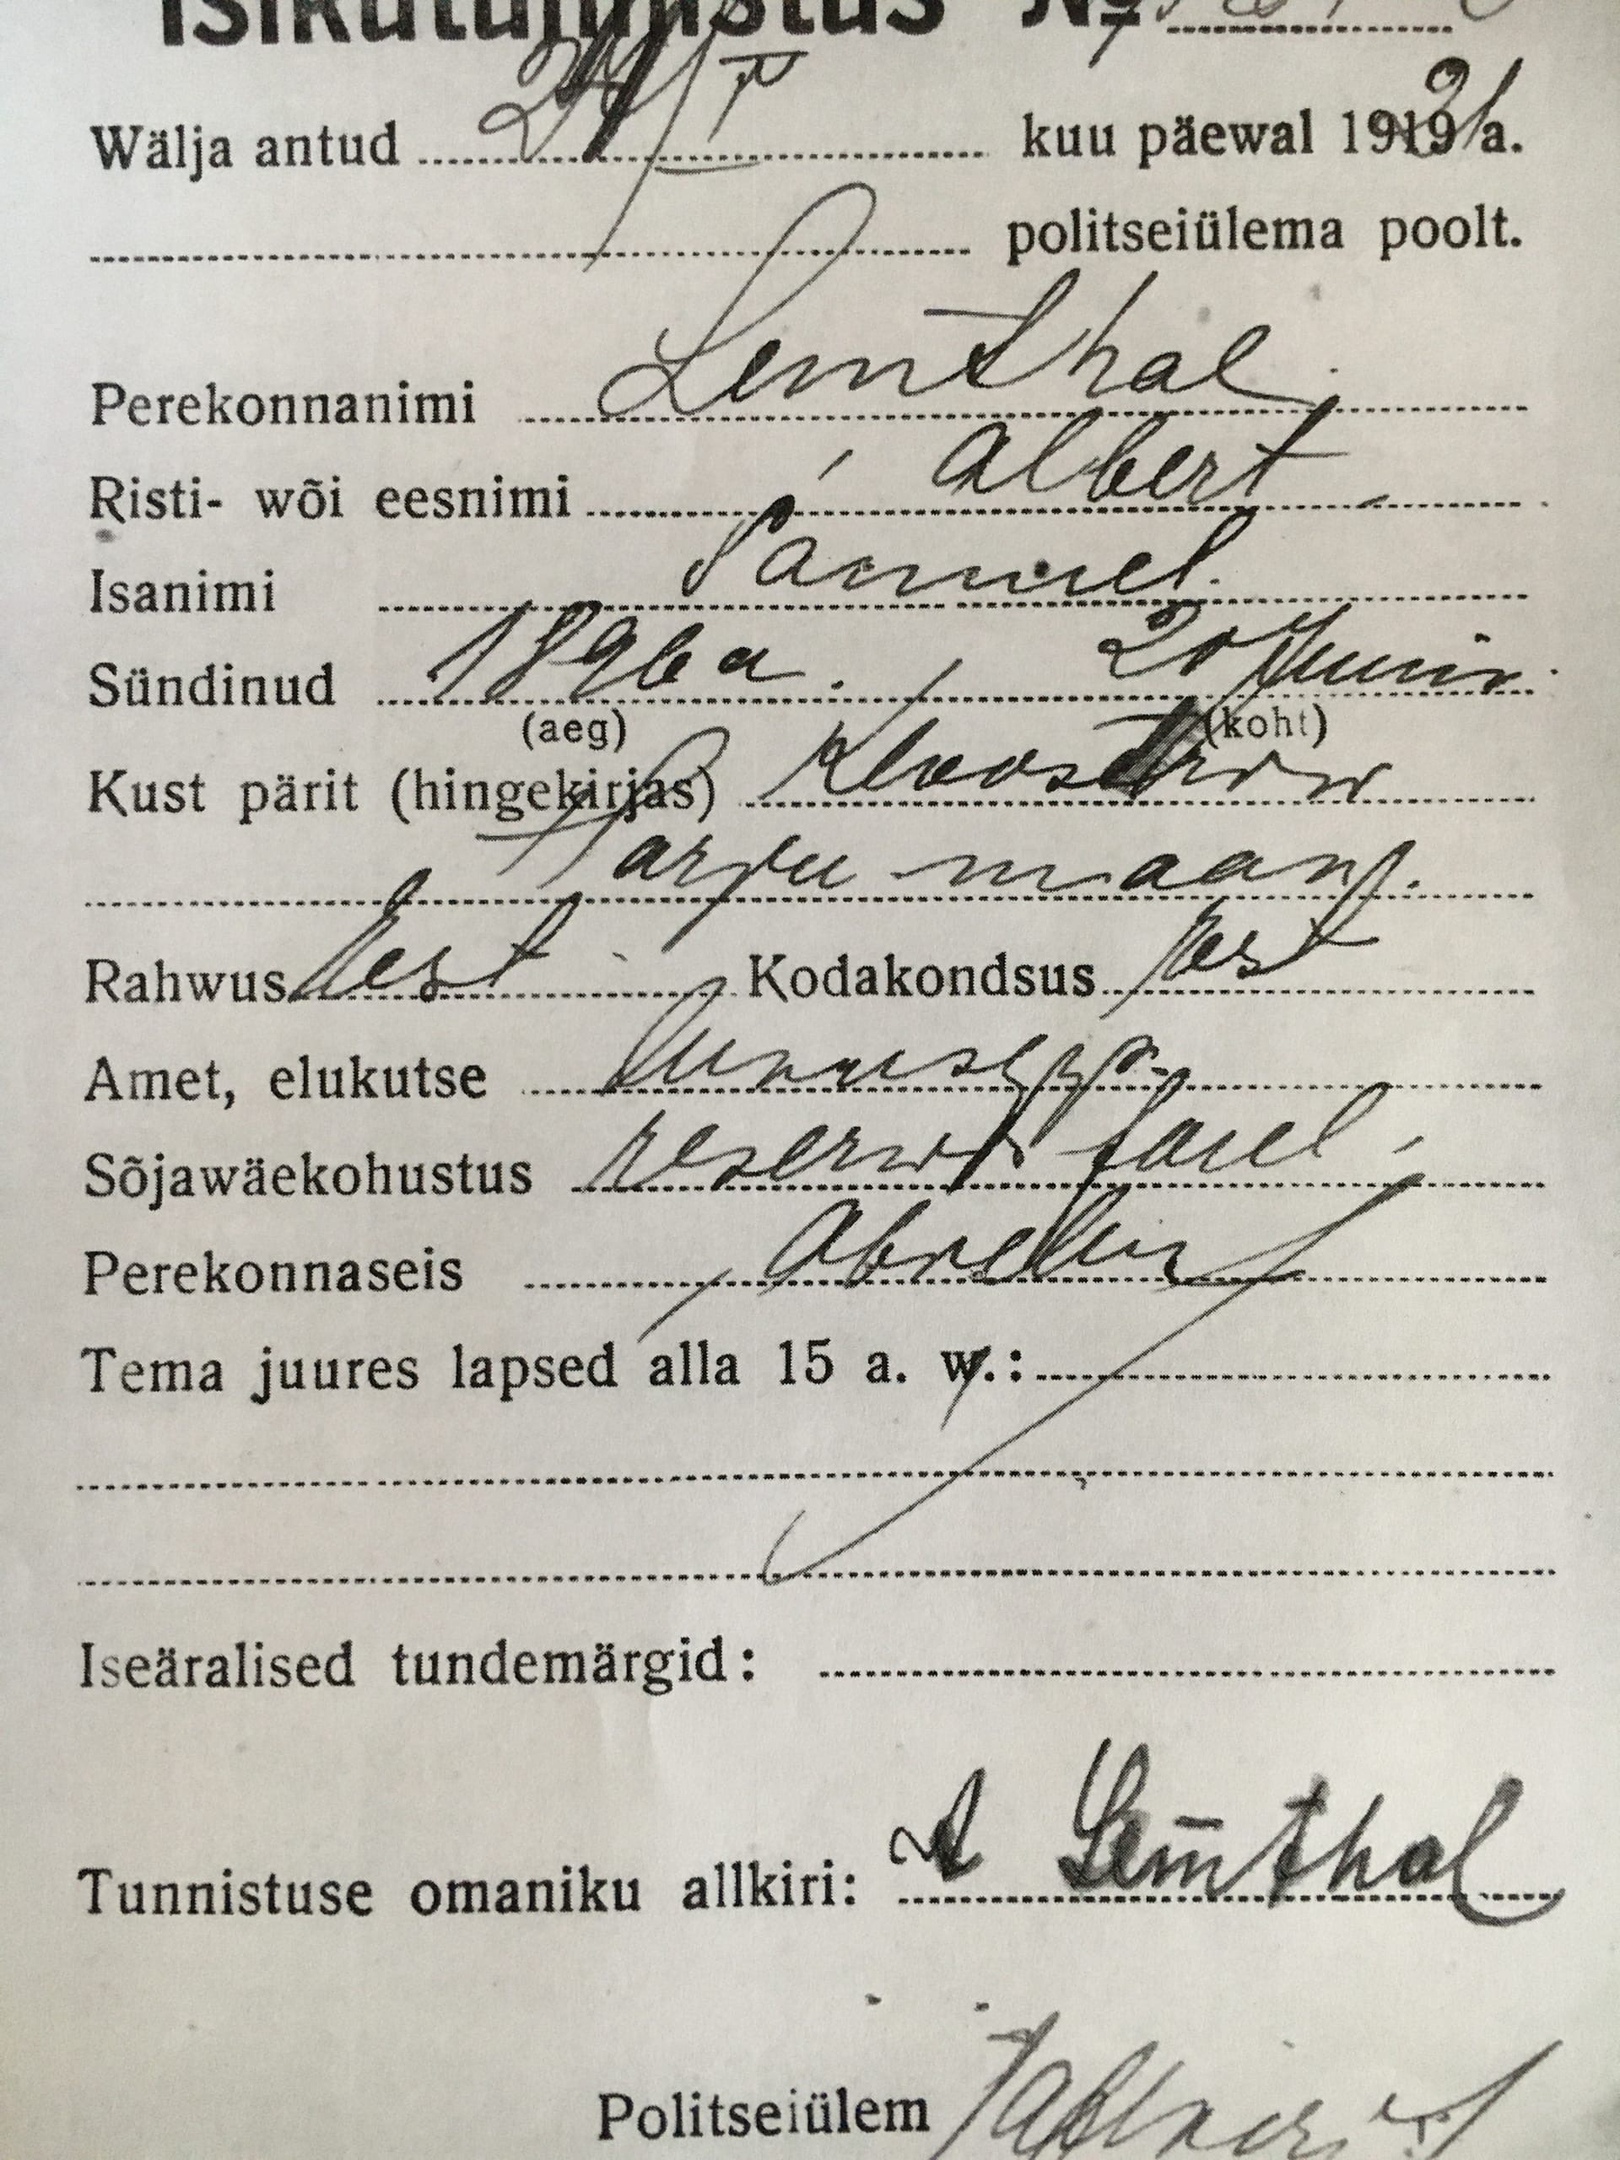 Isikutunnistus №
Wälja antud 24/IV kuu päewal 1921 a.
politseiülema poolt.
Perekonnanimi Lemthal.
Risti- wõi eesnimi Albert
Isanimi Samuel.
Sündinud 1896 a. 20 Juunis
(aeg) (koht)
Kust pärit (hingekirjas) Kloostri w
Harju-maan.
Rahwus Eest Kodakondsus Eest
Amet, elukutse
Sõjawäekohustus
Perekonnaseis Abielus
Tema juures lapsed alla 15 a. w.:
Iseäralised tundemärgid:
Tunnistuse omaniku allkiri: A Lemthal
Politseiülem